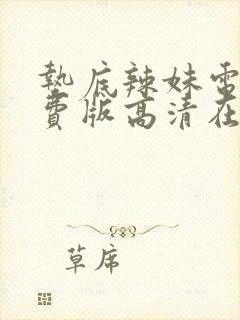 墊底辣妹電
費版高清在
草席